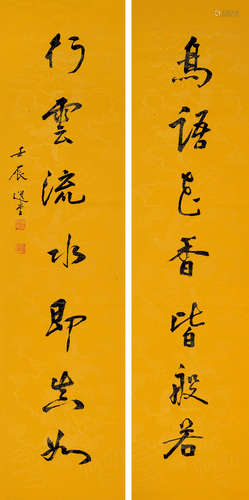 鳥語花香皆般若
行雲流水即真如
壬辰 選堂